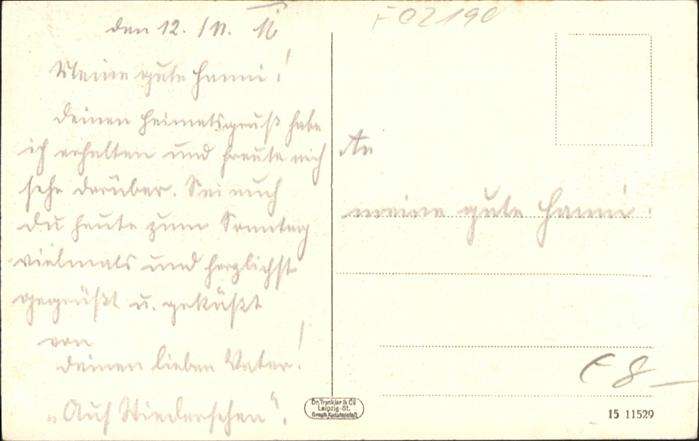 den 12./11. 16
Meine gute Hanni!
Deinen Heimatsgruß habe
ich erhalten und freute mich
sehr darüber. Sei auch
Du heute zum Sonntag
vielmals und herzlichst
gegrüßt u. geküßt
von
deinen lieben Vater!
„Auf Wiedersehen".
F02190
An
meine gute Hanni!
€ 8 –
Dr. Trenkler & Co
Leipzig-St.
15 11529